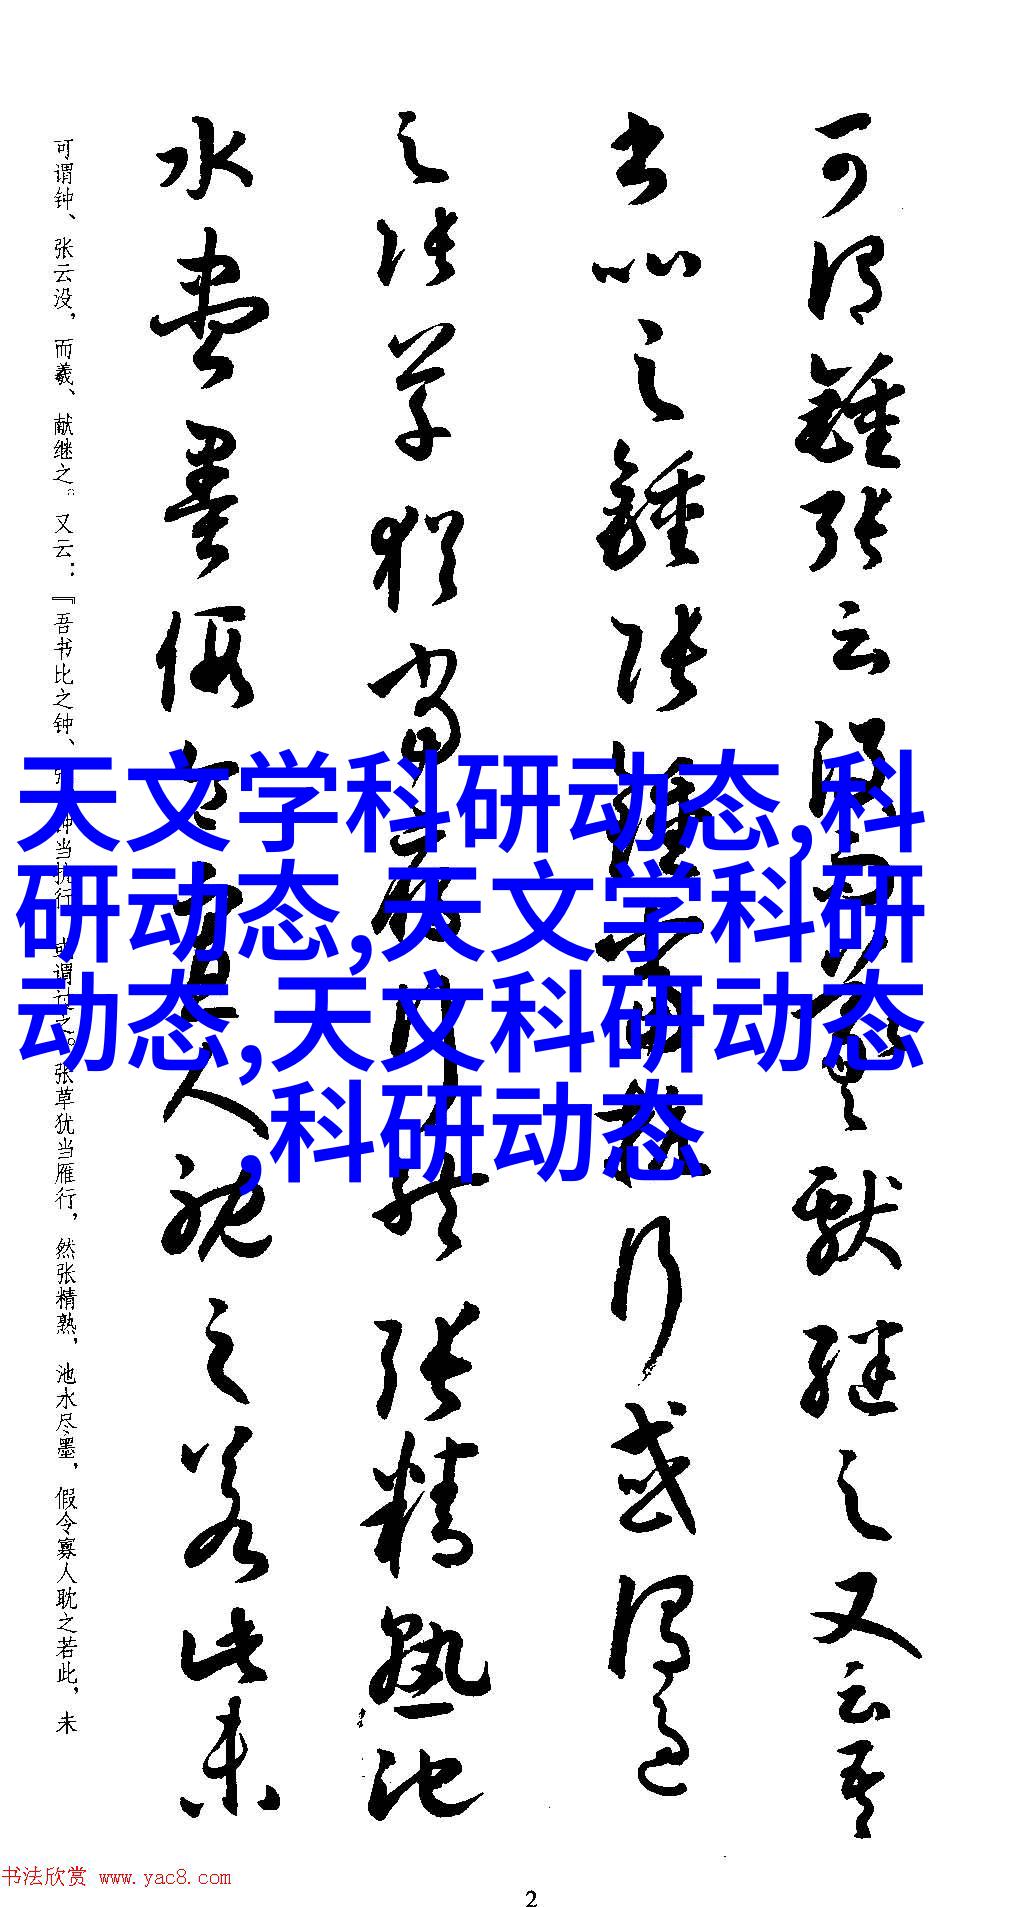 可谓钟张云没而羲献继之又云吾
书比之钟张钟当抗行或谓过
之张草犹当雁行然张精熟池
水尽墨假令寡人耽之若此未
可谓钟、张云没，而羲、献继之。又云：『吾书比之钟、张，钟当抗行，或谓过之。张草犹当雁行，然张精熟，池水尽墨，假令寡人耽之若此，未
天文学科研动态,科
研动态,天文学科研
动态,天文科研动态
,科研动态
书法欣赏 www.yac8.com
2